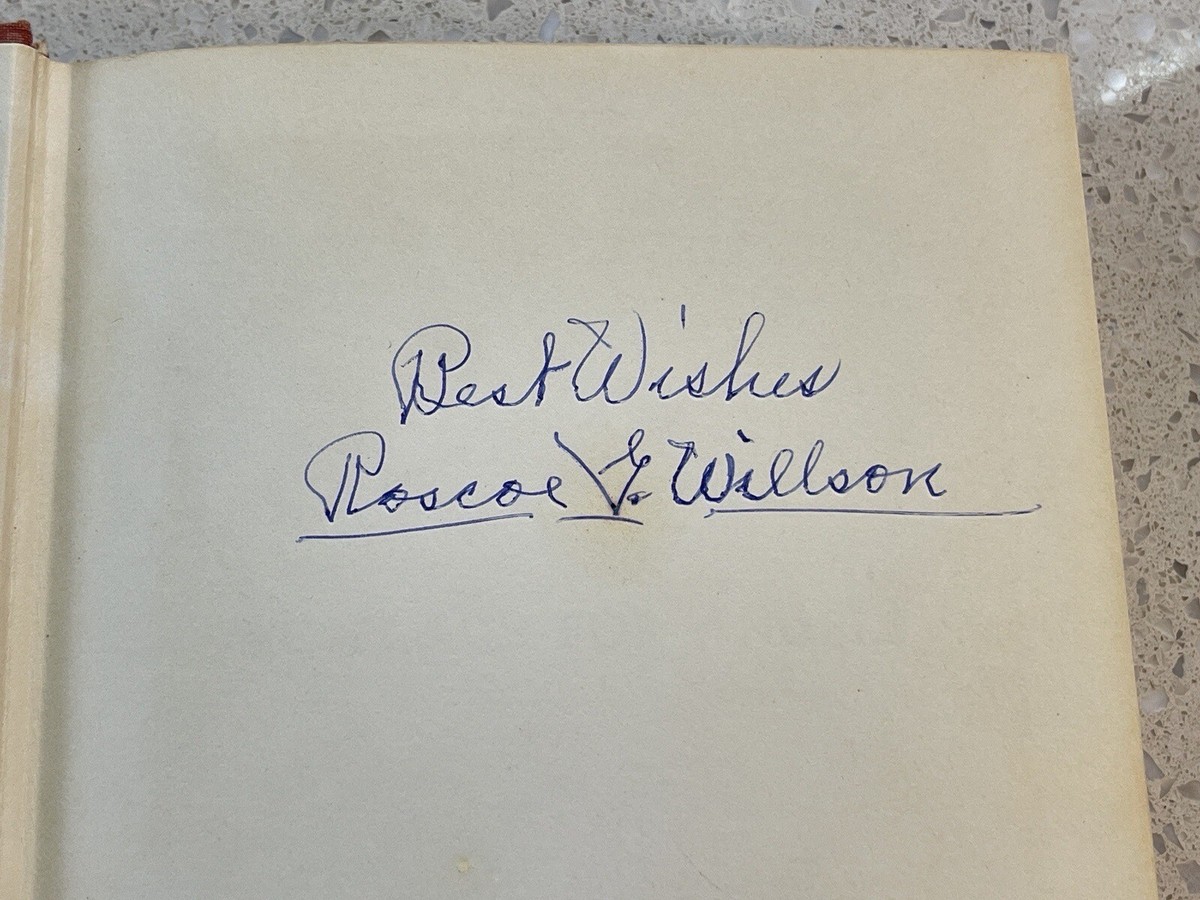 Best Wishes
Roscoe G. Willson